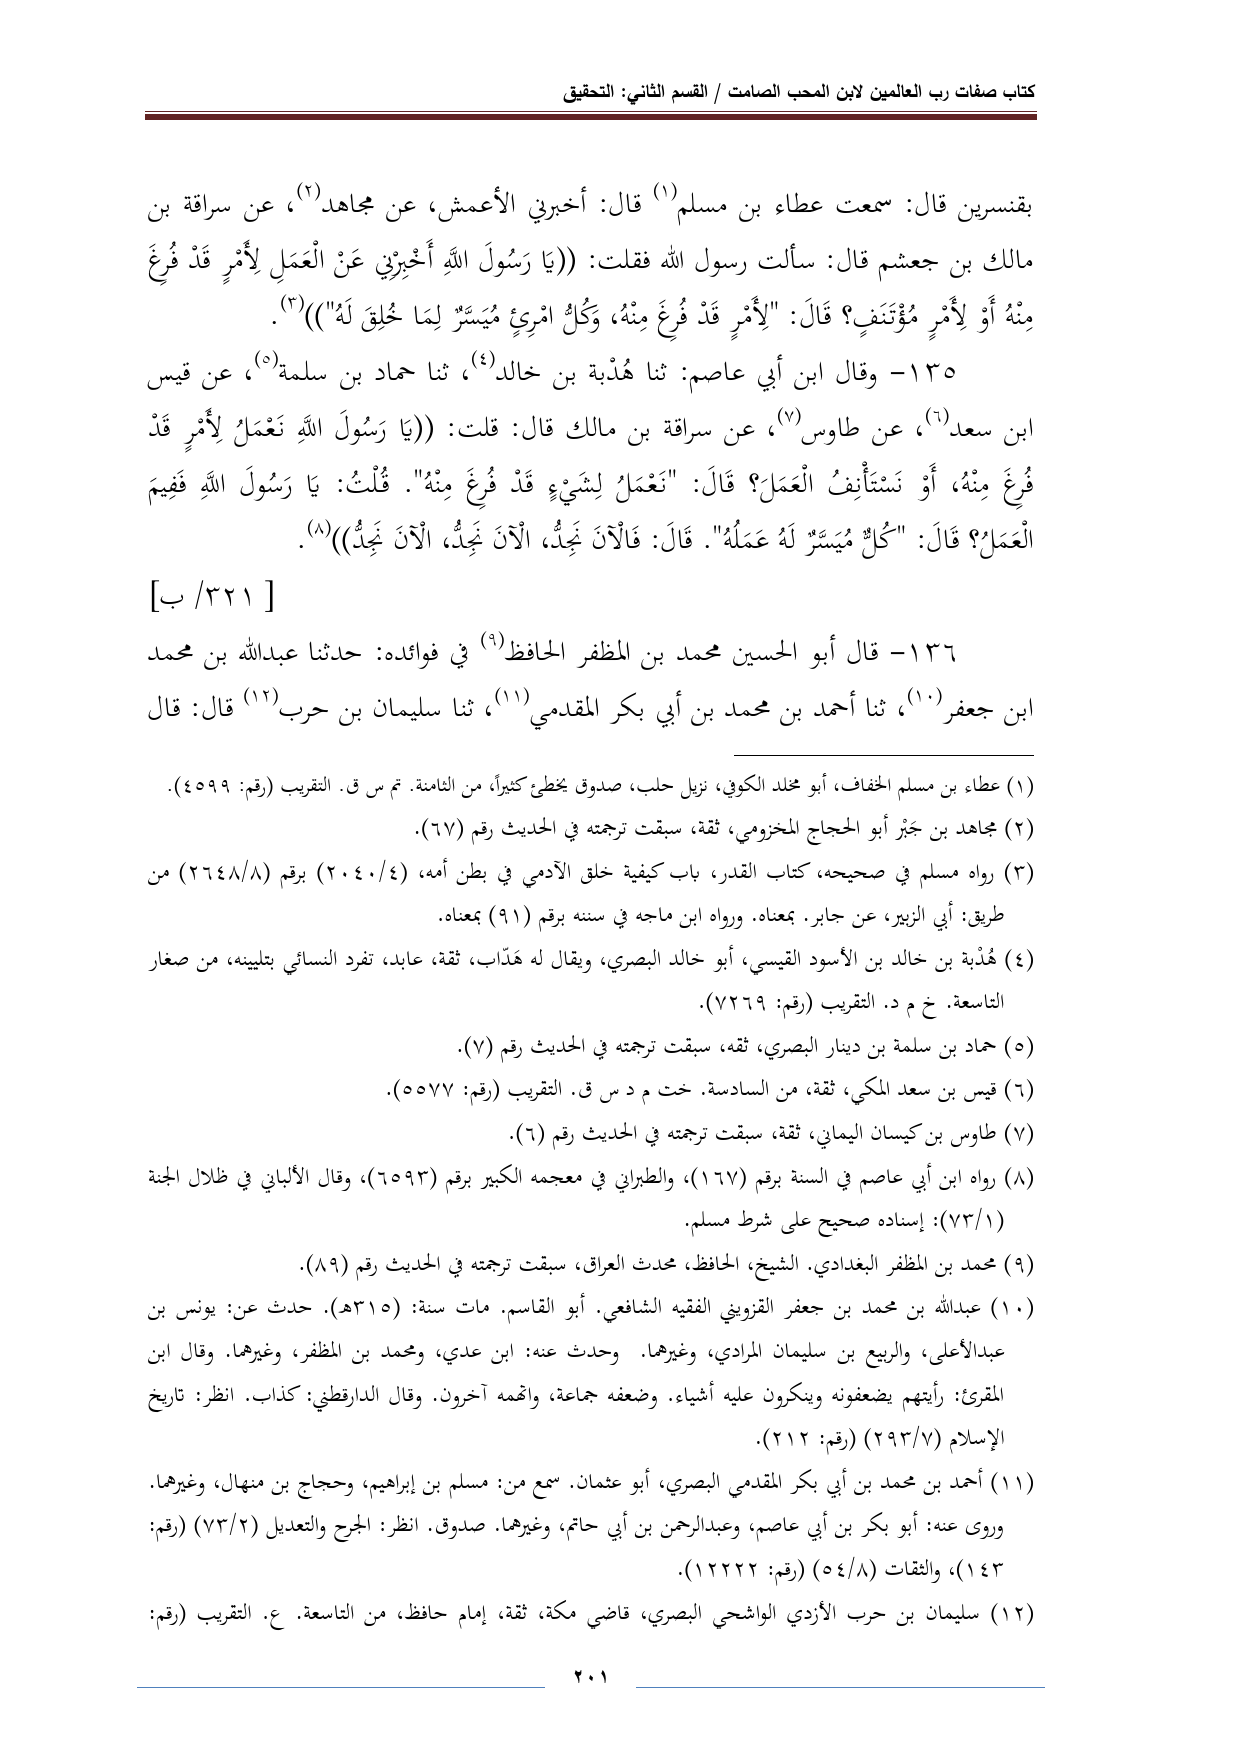 كتاب صفات رب العالمين لابن المحب الصامت / القسم الثاني: التحقيق
بقنسرين قال: سمعت عطاء بن مسلم(١) قال: أخبرني الأعمش، عن مجاهد(٢)، عن سراقة بن
مالك بن جعشم قال: سألت رسول الله فقلت: ((يَا رَسُولَ اللَّهِ أَخْبِرْنِي عَنْ الْعَمَلِ لِأَمْرٍ قَدْ فُرِغَ
مِنْهُ أَوْ لِأَمْرٍ مُؤْتَنَفٍ؟ قَالَ: "لِأَمْرٍ قَدْ فُرِغَ مِنْهُ، وَكُلُّ امْرِئٍ مُيَسَّرٌ لِمَا خُلِقَ لَهُ"))(٣).
١٣٥- وقال ابن أبي عاصم: ثنا هُدْبة بن خالد(٤)، ثنا حماد بن سلمة(٥)، عن قيس
ابن سعد(٦)، عن طاوس(٧)، عن سراقة بن مالك قال: قلت: ((يَا رَسُولَ اللَّهِ نَعْمَلُ لِأَمْرٍ قَدْ
فُرِغَ مِنْهُ، أَوْ نَسْتَأْنِفُ الْعَمَلَ؟ قَالَ: "نَعْمَلُ لِشَيْءٍ قَدْ فُرِغَ مِنْهُ". قُلْتُ: يَا رَسُولَ اللَّهِ فَفِيمَ
الْعَمَلُ؟ قَالَ: "كُلٌّ مُيَسَّرٌ لَهُ عَمَلُهُ". قَالَ: فَالْآنَ نَجِدُّ، الْآنَ نَجِدُّ، الْآنَ نَجِدُّ))(٨).
[ ٣٢١/ ب]
١٣٦- قال أبو الحسين محمد بن المظفر الحافظ(٩) في فوائده: حدثنا عبدالله بن محمد
ابن جعفر(١٠)، ثنا أحمد بن محمد بن أبي بكر المقدمي(١١)، ثنا سليمان بن حرب(١٢) قال: قال
(١) عطاء بن مسلم الخفاف، أبو مخلد الكوفي، نزيل حلب، صدوق يخطئ كثيراً، من الثامنة. تم س ق. التقريب (رقم: ٤٥٩٩).
(٢) مجاهد بن جَبْر أبو الحجاج المخزومي، ثقة، سبقت ترجمته في الحديث رقم (٦٧).
(٣) رواه مسلم في صحيحه، كتاب القدر، باب كيفية خلق الآدمي في بطن أمه، (٢٠٤٠/٤) برقم (٢٦٤٨/٨) من
طريق: أبي الزبير، عن جابر. بمعناه. ورواه ابن ماجه في سننه برقم (٩١) بمعناه.
(٤) هُدْبة بن خالد بن الأسود القيسي، أبو خالد البصري، ويقال له هَدّاب، ثقة، عابد، تفرد النسائي بتليينه، من صغار
التاسعة. خ م د. التقريب (رقم: ٧٢٦٩).
(٥) حماد بن سلمة بن دينار البصري، ثقه، سبقت ترجمته في الحديث رقم (٧).
(٦) قيس بن سعد المكي، ثقة، من السادسة. خت م د س ق. التقريب (رقم: ٥٥٧٧).
(٧) طاوس بن كيسان اليماني، ثقة، سبقت ترجمته في الحديث رقم (٦).
(٨) رواه ابن أبي عاصم في السنة برقم (١٦٧)، والطبراني في معجمه الكبير برقم (٦٥٩٣)، وقال الألباني في ظلال الجنة
(٧٣/١): إسناده صحيح على شرط مسلم.
(٩) محمد بن المظفر البغدادي. الشيخ، الحافظ، محدث العراق، سبقت ترجمته في الحديث رقم (٨٩).
(١٠) عبدالله بن محمد بن جعفر القزويني الفقيه الشافعي. أبو القاسم. مات سنة: (٣١٥هـ). حدث عن: يونس بن
عبدالأعلى، والربيع بن سليمان المرادي، وغيرهما. وحدث عنه: ابن عدي، ومحمد بن المظفر، وغيرهما. وقال ابن
المقرئ: رأيتهم يضعفونه وينكرون عليه أشياء. وضعفه جماعة، واتهمه آخرون. وقال الدارقطني: كذاب. انظر: تاريخ
الإسلام (٢٩٣/٧) (رقم: ٢١٢).
(١١) أحمد بن محمد بن أبي بكر المقدمي البصري، أبو عثمان. سمع من: مسلم بن إبراهيم، وحجاج بن منهال، وغيرهما.
وروى عنه: أبو بكر بن أبي عاصم، وعبدالرحمن بن أبي حاتم، وغيرهما. صدوق. انظر: الجرح والتعديل (٧٣/٢) (رقم:
١٤٣)، والثقات (٥٤/٨) (رقم: ١٢٢٢٢).
(١٢) سليمان بن حرب الأزدي الواشحي البصري، قاضي مكة، ثقة، إمام حافظ، من التاسعة. ع. التقريب (رقم:
٢٠١